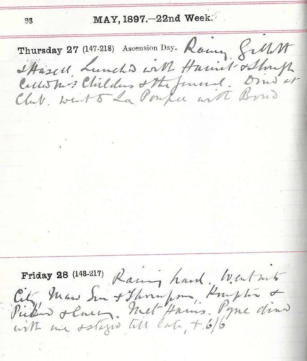 98
MAY, 1897.—22nd Week.
Thursday 27 (147-218) Ascension Day. Rainy. Gillott
& Hasell Lunched with Harriet &
Childers & the funeral. Dined at
Club. went to La Poupée with Bond
Friday 28 (148-217) Raining hard. Went into
City, Maw Son & Thompson, Hampton &
met Harris. Pyne dined
with me & stayed till late, + 6/6